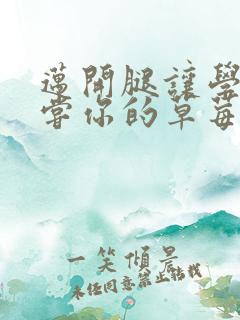 邁開腿讓學
嘗你的草莓
一笑傾景
未任同意禁止转载